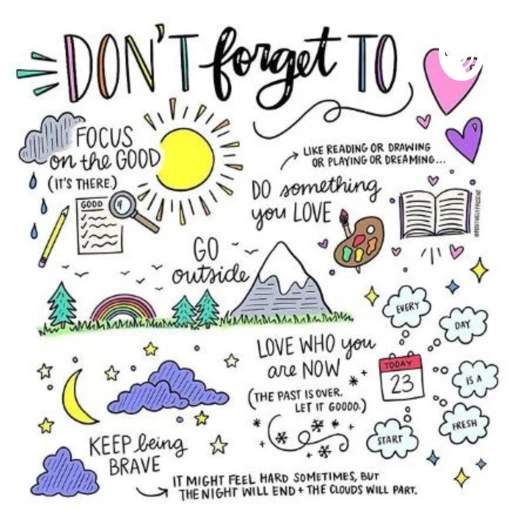 DON'T forget TO
FOCUS
on the GOOD
(IT'S THERE.)
GOOD
LIKE READING OR DRAWING
OR PLAYING OR DREAMING...
DO something
you LOVE
GO
outside
LOVE WHO you
are NOW
(THE PAST IS OVER.
LET IT GOOOO.)
TODAY
23
EVERY
DAY
IS A
FRESH
START
KEEP being
BRAVE
IT MIGHT FEEL HARD SOMETIMES, BUT
THE NIGHT WILL END + THE CLOUDS WILL PART.